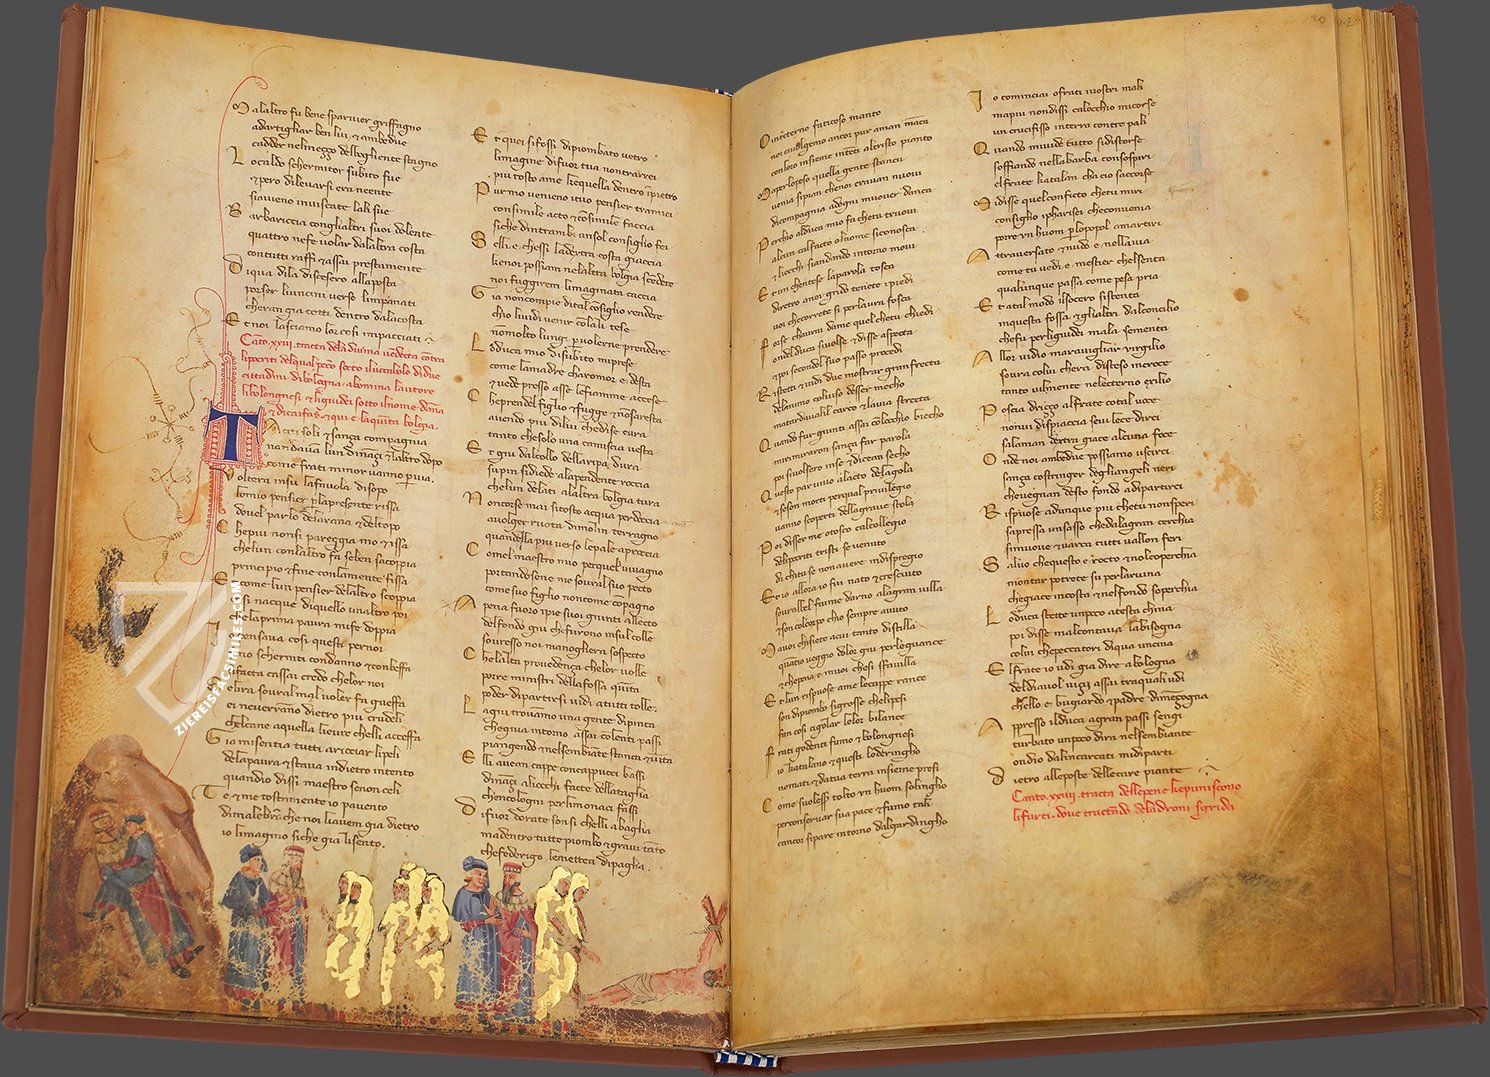 alaltro fu bene sparuier griffagno
adartigliar ben lui ⁊ ambedue
cadder nelmezzo delbogliente stagno
Lo caldo schermitor subito fue
⁊ pero dileuarsi era neente
siaueno inuiscate lali sue
Barbariccia conglialtri suoi dolente
quattro nefe uolar dalaltra costa
contutti raffi ⁊ assai prestamente
Di qua dila discesero allaposta
porser liuncini uerso limpaniati
cheran gia cotti dentro dalacosta
Et noi lasciamo lor cosi impacciati
Canto .xxiii. tracta dela diuina uedecta contra
cittadini dibologna
Taciti soli ⁊ sança compagnia
nandauan lun dinançi ⁊ laltro dopo
come frati minor uanno p uia.
Voltera insu lafauola disopo
lomio pensier p lapresente rissa
douel parlo delarana ⁊ deltopo
Che piu nonsi pareggia mo ⁊ issa
chelun conlaltro fa seben sacoppia
principio ⁊ fine conlamente fissa
E come lun pensier delaltro scoppia
cosi nacque diquello unaltro poi
che laprima paura mife doppia
I pensaua cosi questi pernoi
sono scherniti condanno ⁊ conbeffa
sifacta cassai credo chelor noi
Se lira soural mal uoler fa gueffa
ei neuerranno dietro piu crudeli
chelcane aquella lieure chelli acceffa
Gia mi sentia tutti arricciar lipeli
delapaura ⁊ staua indietro intento
quandio dissi maestro senon celi
Te ⁊ me tostamente io pauento
dimalebranche noi liauem gia dietro
io limagino siche gia lisento.
Et quei sifossi dipiombato uetro
limagine difuor tua nontrarrei
piu tosto ame kequella dentro ipietro
Pur mo uenieno ituo pensier tramiei
consimile acto ⁊ consimile faccia
siche dintrambi unsol consiglio fei
Selli e chessi ladextra costa giaccia
kenoi possiam nelaltra bolgia scendere
noi fuggirem limaginata caccia
Gia noncompie dital cosiglio rendere
chio liuidi uenir colali tese
nomolto lungi p uolerne prendere
Lo duca mio disubito miprese
come lamadre charomor e desta
⁊ uede presso asse lefiamme accese
Che prendel figlio ⁊ fugge ⁊ nonsaresta
auendo piu dilui che dise cura
tanto chesolo una camiscia uesta
E giu dalcollo dellaripa dura
supin sidiede alapendente roccia
chelun delati alaltra bolgia tura
Non corse mai sitosto acqua perdoccia
auolger ruota dimolin terragno
quandella piu uerso lepale aproccia
Comel maestro mio perquel uiuagno
portandosene me soural suo pecto
come suo figlio noncome compagno
A pena fuoro ipie suoi giunti allecto
delfondo giu chefurono insul colle
souresso noi manogliera sospecto
Che lalta prouedença chelor uolle
porre ministri dellafossa quinta
poder dipartirsi indi atutti tolle
La giu trouamo una gente dipinta
chegiua intorno assai colenti passi
piangendo ⁊ nelsembiante stanca ⁊ uinta
Elli auean cappe concappucci bassi
dinaçi aliocchi facte dellataglia
chencologni perlimonaci fassi
Di fuor dorate sonsi chelli abaglia
madentro tutte piombo ⁊ graui tanto
chefederigo lemettea dipaglia.
O inecterno faticoso manto
noi ciuolgemo ancor pur aman manca
conloro insieme intenti altristo pianto
Ma perlopeso quella gente stanca
uenia sipian chenoi erauan nuoui
dicompagnia adogni muouer danca
Perchio alduca mio fa chetu truoui
alcun calfacto olnome siconosca
⁊ liocchi siandando intorno moui
Et un chentese laparola tosca
diretro anoi grido tenete ipiedi
uoi checorrete si perlaura fosca
Forse chaurai dame quel chetu chiedi
ondel duca siuolse ⁊ disse aspecta
⁊ poi secondol suo passo procedi
Ristetti ⁊ uidi due mostrar gran frecta
delanimo coluiso desser mecho
matardauali l carco ⁊ lauia strecta
Quando fur giunti assai colocchio biecho
mirimiraron sança far parola
poi siuolsero inse ⁊ dicean secho
Questo par uiuo alacto dela gola
⁊ seson morti perqual priuilegio
uanno scoperti dellagraue stola
Poi disser me otosco calcollegio
delipocriti tristi se uenuto
di chi tu se nonauere indispregio
Et io alloro io fui nato ⁊ cresciuto
sourallel fiume darno alagran uilla
⁊ son colcorpo chio sempre auuto
Ma uoi chisiete acui tanto distilla
quatio ueggio dolor giu perleguance
⁊ chepena e inuoi chesi sfauilla
Et lun rispuose ame lecappe rance
son dipiombo sigrosse chelipesi
fan cosi cigolar lelor bilance
Frati godenti fumo ⁊ bolognesi
io katalano ⁊ questi loderingho
nomati ⁊ datua terra insieme presi
Come suolessr tolto un huom solingho
perconseruar sua pace ⁊ fumo tali
cancor sipare intorno dalgardingho
Io cominciai ofrati iuostri mali
mapiu nondissi calocchio micorse
un crucifisso interra contre pali
Quando miuide tutto sidistorse
soffiando nellabarba consospiri
elfrate katalan chacio saccorse
Mi disse quel conficto chetu miri
consiglio ipharisei checonuenia
porre un huom p lopopol amartiri
Attrauersato ⁊ nudo e nellauia
come tu uedi ⁊ mestier chelsenta
qualunque passa come pesa pria
Et atal modo ilsocero sistenta
inquesta fossa ⁊ glialtri dalconcilio
chefu perligiudei mala sementa
Allor uidio marauigliar uirgilio
soura colui chera disteso incroce
tanto uilmente nelecterno exilio
Poscia drizço alfrate cotal uoce
nonui dispiaccia seui lece dirci
salaman dextra giace alcuna foce
Onde noi ambedue possiamo uscirci
sança costringer degliangeli neri
cheuegnan desto fondo adipartirci
Rispuose adunque piu chetu nonsperi
sapressa unsasso chedalagran cerchia
simuoue ⁊ uarca tutti uallon feri
Saluo chequesto e rocto ⁊ nolcoperchia
montar potrete su perlaruina
chegiace incosta ⁊ nelfondo soperchia
Lo duca stette unpoco atesta china
poi disse malcontaua labisogna
colui chepeccatori diqua uncina
El frate io udi gia dire abologna
deldiauol uizi assai traquali udi
chelli e bugiardo ⁊ padre dimezogna
Appresso ilduca agran passi sengi
turbato unpoco dira nelsembiante
ondio dalincarcati midiparti
Dietro alleposte dellecare piante
Canto .xxiiii. tracta dellepene kepuniscono
lifurti. doue tractando deladroni sgridi
ZIEREISFACSIMILES.COM